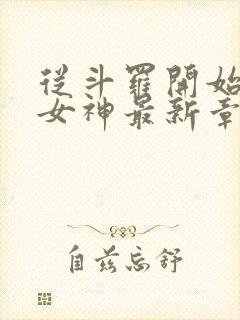 從斗羅開始
女神最新章
自茲忘舒